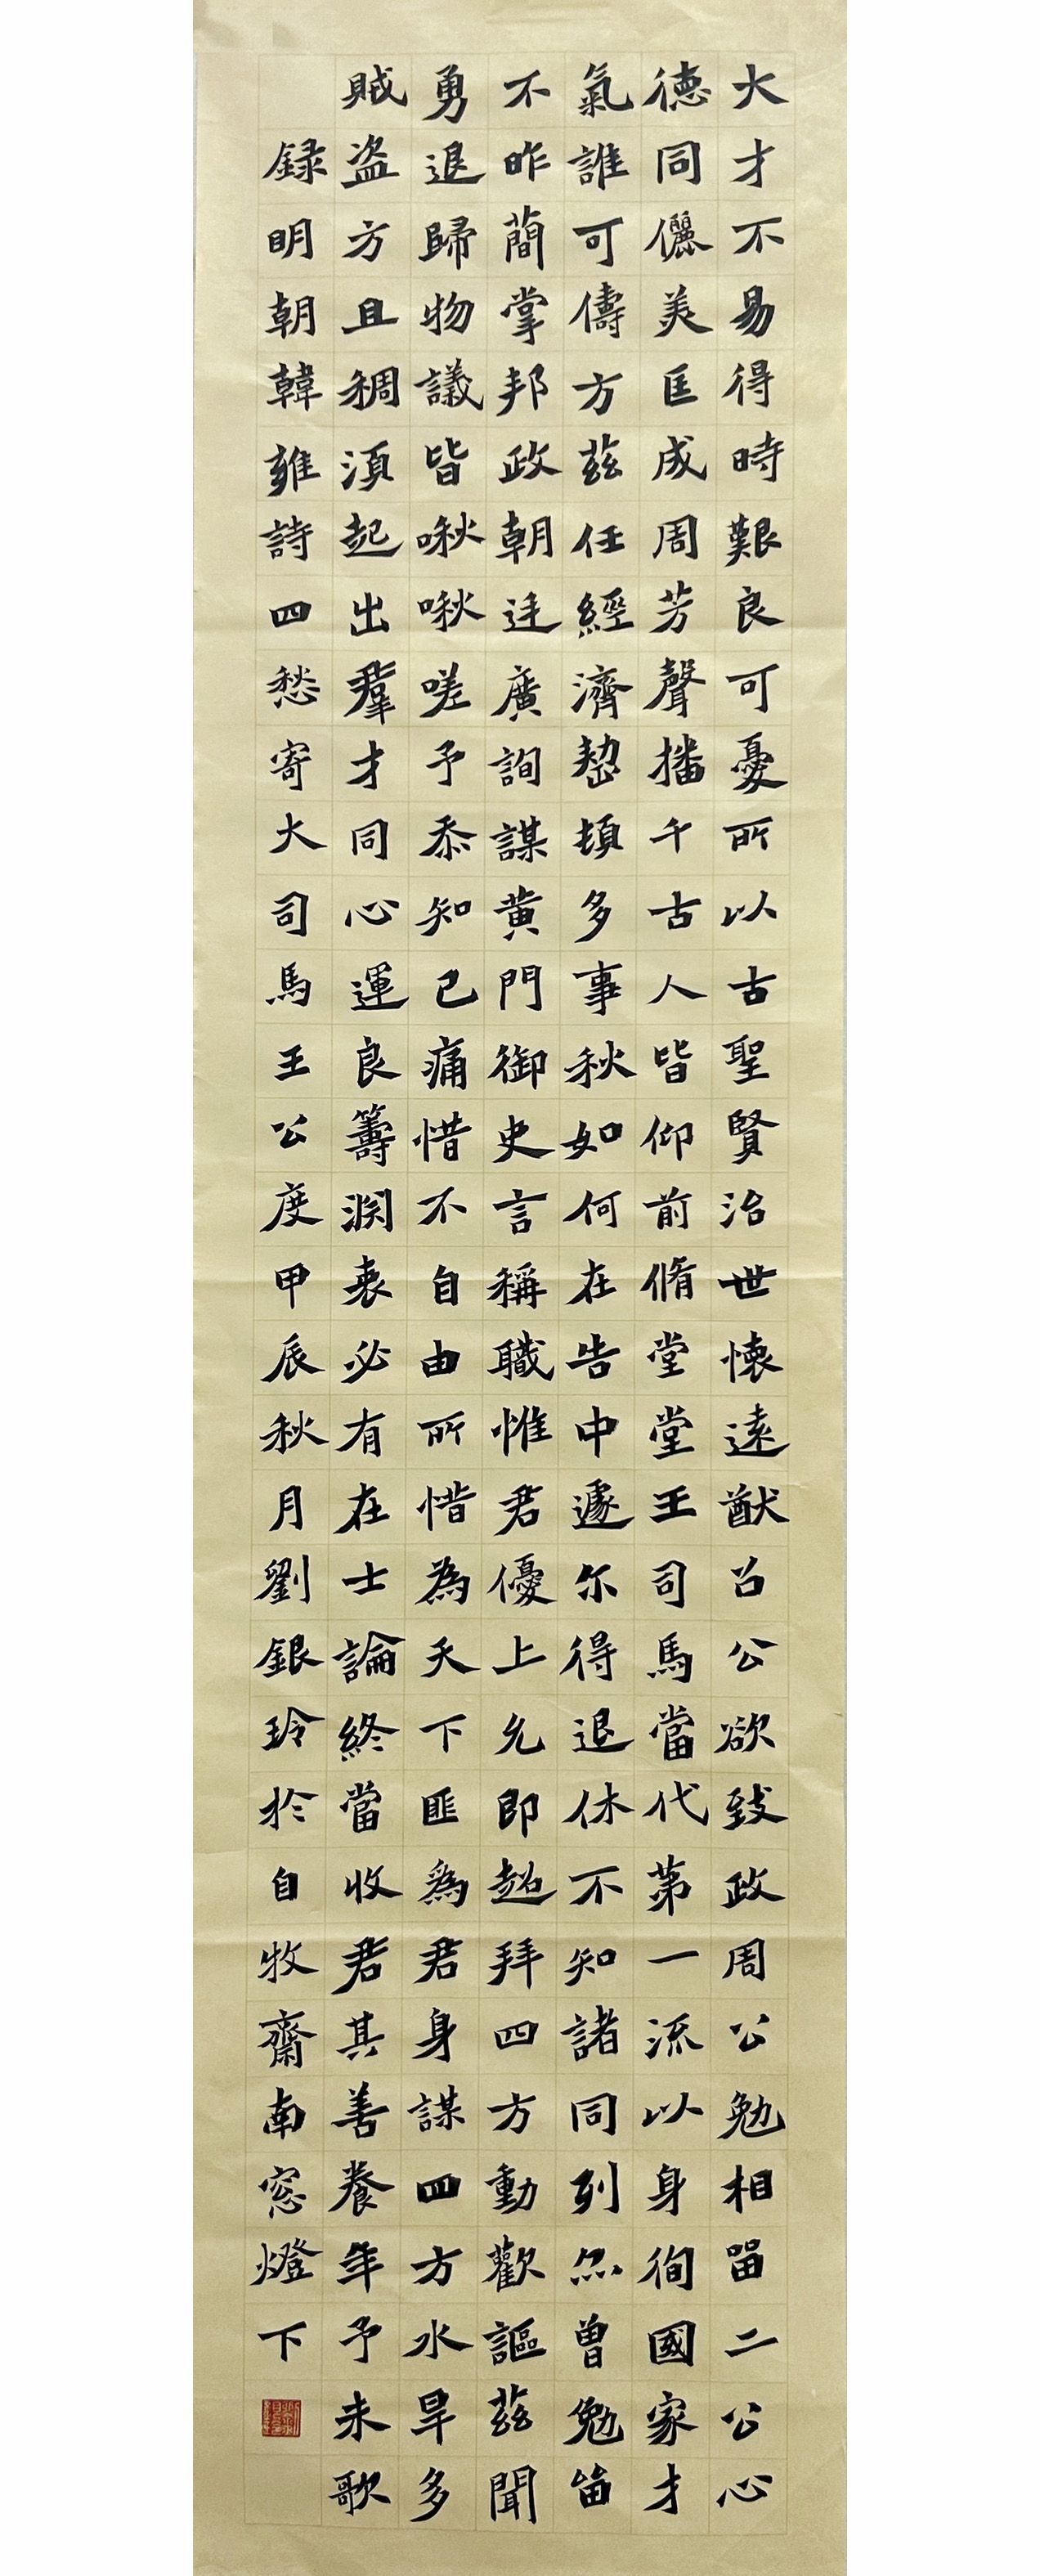 大才不易得時艱良可憂所以古聖賢治世懷遠猷召公欲致政周公勉相畱二公心
德同儷美匡成周芳聲播千古人皆仰前脩堂堂王司馬當代第一流以身徇國家才
氣誰可儔方茲任經濟愸頓多事秋如何在告中遽尔得退休不知諸同列尒曽勉畄
不昨蕳掌邦政朝廷廣詢謀黄門御史言稱職惟君優上允即超拜四方動歡謳茲聞
勇退歸物議皆啾啾嗟予忝知己痛惜不自由所惜為天下匪為君身謀四方水旱多
賊盗方且稠湏起出羣才同心運良籌渕衷必有在士論終當收君其善養年予未歌
録明朝韓雍詩四愁寄大司馬王公度甲辰秋月劉銀玲於自牧齋南窓燈下